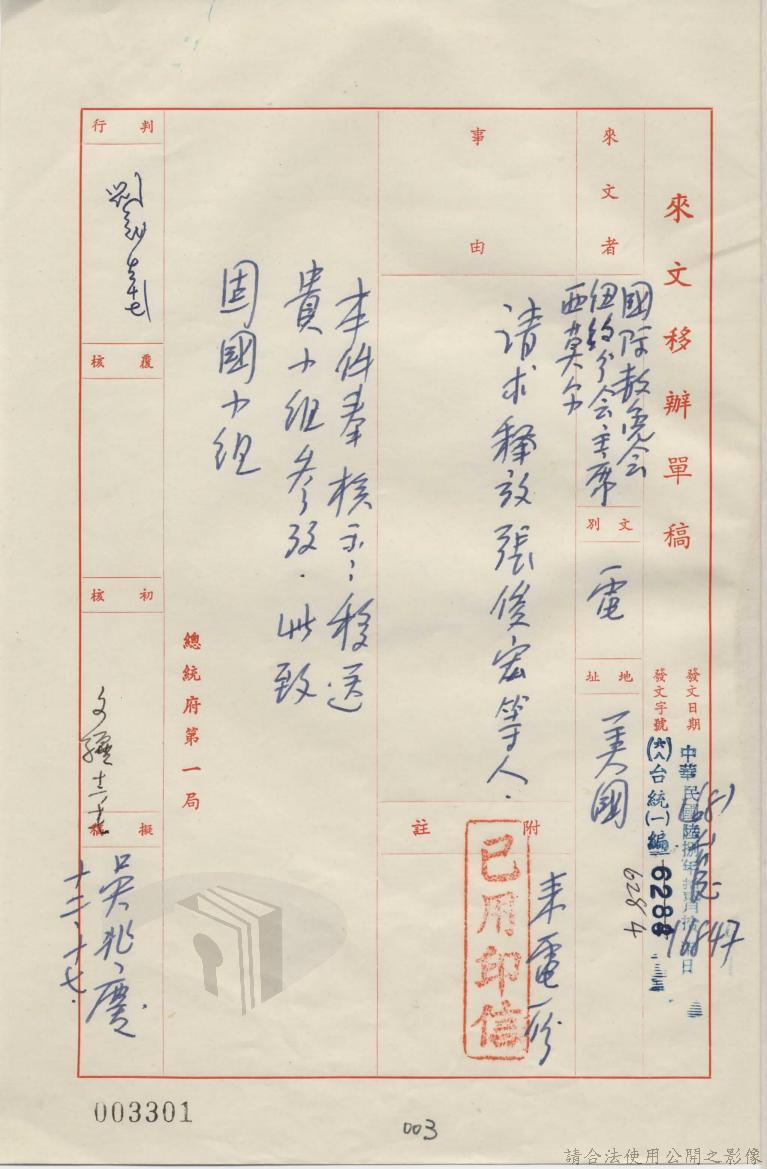 來文移辦單稿
發文日期
中華民國陸捌年
發文字號
(六八)台統(一)編 6284
6284
來文者
國際赦免會
紐約分會主席
西莫爾
文別
電
地址
美國
事由
請求釋放張俊宏等人.
附註
來電一份
已用印信
本件奉核示:移送
貴小組參考.此致
固國小組
總統府第一局
判行
覆核
初核
擬稿
吳兆慶
十二、十七.
003301
003
請合法使用公開之影像